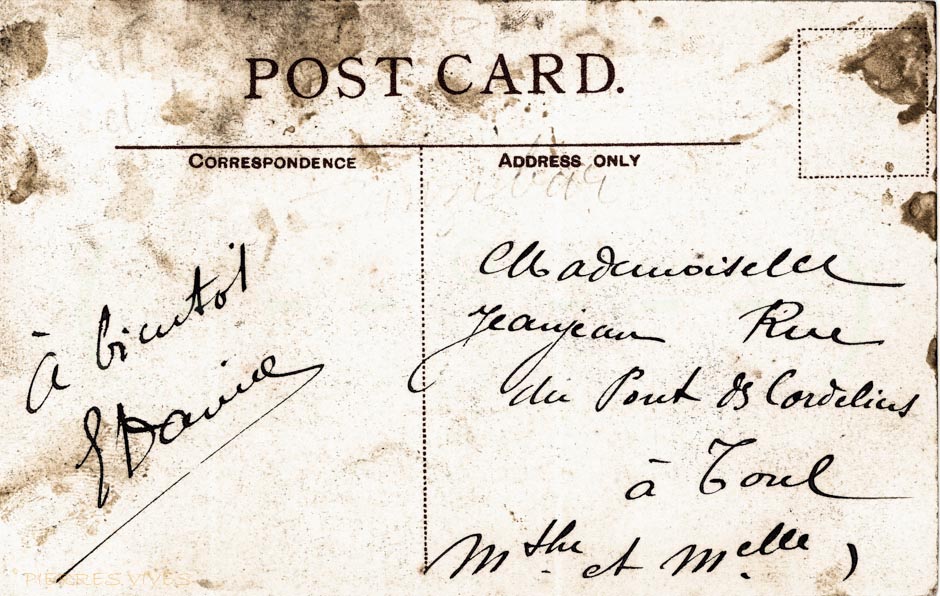 POST CARD.
CORRESPONDENCE
ADDRESS ONLY
à bientot
Mademoiselle
Jeanjean Rue
du Pont des Cordeliers
à Toul
Mthe et Melle )
PIERRES VIVES